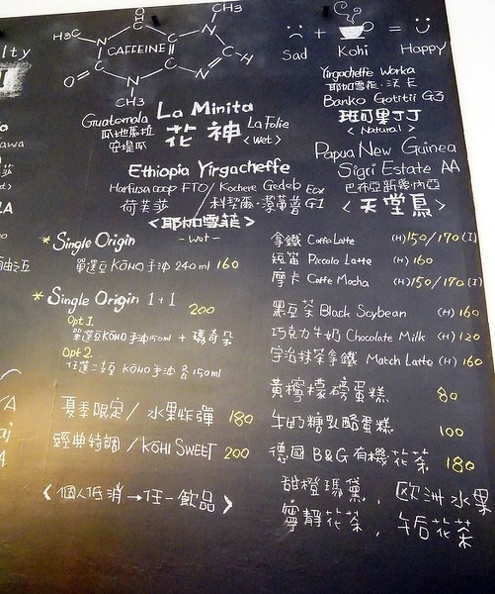 H3C
CH3
CAFFEINE
Sad + Kohi = Happy
CH3
Yirgacheffe Worka
耶加雪菲·沃卡
Banko Gotitii G3
班可果丁丁
< Natural >
Guatemala La Minita
瓜地馬拉 花神 La Folie
< Wet >
Ethiopia Yirgacheffe
Harfusa coop FTO / Kochere Gedeb Ecx
荷芙莎 G1
<耶加雪菲>
- wet -
Papua New Guinea
Sigri Estate AA
巴布亞新幾內亞
< 天堂鳥 >
* Single Origin
單選豆KŌNO手沖 240ml 160
* Single Origin 1+1 200
Opt 1.
單選豆KŌNO手沖150ml + 瑪奇朵
Opt 2.
任選二支豆 KŌNO手沖各150ml
夏季限定 / 水果炸彈 180
經典特調 / KŌHI SWEET 200
< 個人低消→任一飲品 >
拿鐵 Caffe Latte (H)150/170(I)
短笛 Piccolo Latte (H) 160
摩卡 Caffe Mocha (H)150/170(I)
黑豆茶 Black Soybean (H) 160
巧克力牛奶 Chocolate Milk (H) 120
宇治抹茶拿鐵 Match Latte (H) 160
黃檸檬磅蛋糕 80
牛奶糖乳酪蛋糕 100
德國 B&G 有機花茶 180
甜橙瑪黛, 歐洲水果
寧靜花茶, 午后花茶